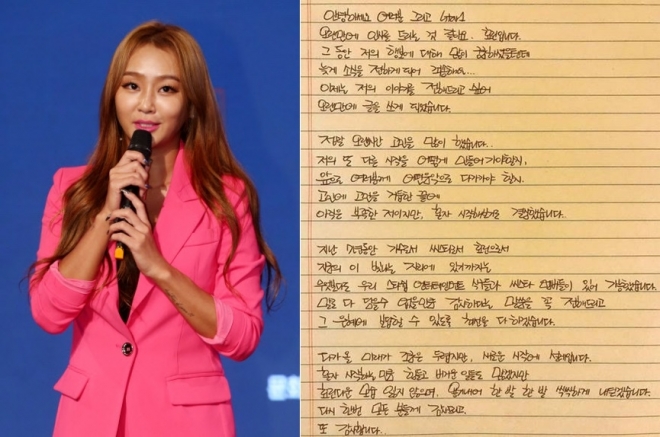 안녕하세요 여러분 그리고
오랜만에 인사를 드리는 것 같아요. 효린입니다.
그 동안 저의 행보에 대해 많이 궁금하셨을텐데
늦게 소식을 전하게 되어 죄송해요...
이제는 저의 이야기를 전해드리고 싶어
오랜만에 글을 쓰게 되었습니다.
정말 오랜시간 고민을 많이 했습니다..
저의 또 다른 시작을 어떻게 만들어가야할지,
앞으로 여러분께 어떤음악으로 다가가야 할지.
고민에 고민을 거듭한 끝에
아직은 부족한 저이지만, 혼자 시작해보려고 결정했습니다..
지난 7년동안 가수로서 씨스타로서 효린으로서
지금의 이 빛나는 자리에 있기까지는
무엇보다도 우리 스타쉽 엔터테인먼트 식구들과 씨스타 멤버들이 있어 가능했습니다.
말로 다 담을수 없을만큼 감사하다는 말씀을 꼭 전해드리고
그 은혜에 보답할 수 있도록 최선을 다 하겠습니다.
다가올 미래가 조금은 두렵지만, 새로운 시작에 설레입니다.
혼자 시작하는 만큼 힘들고 버거운 일들도 많겠지만
효린다운 모습 잃지 않으며, 용기내어 한 발 한 발 씩씩하게 내딛겠습니다.
다시 한번 모든 분들께 감사드리고,
또 감사합니다..